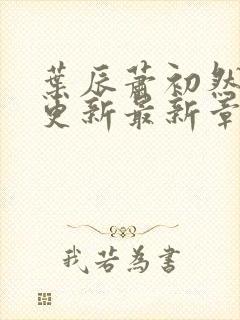 葉辰蕭初然
更新最新章
我若為書